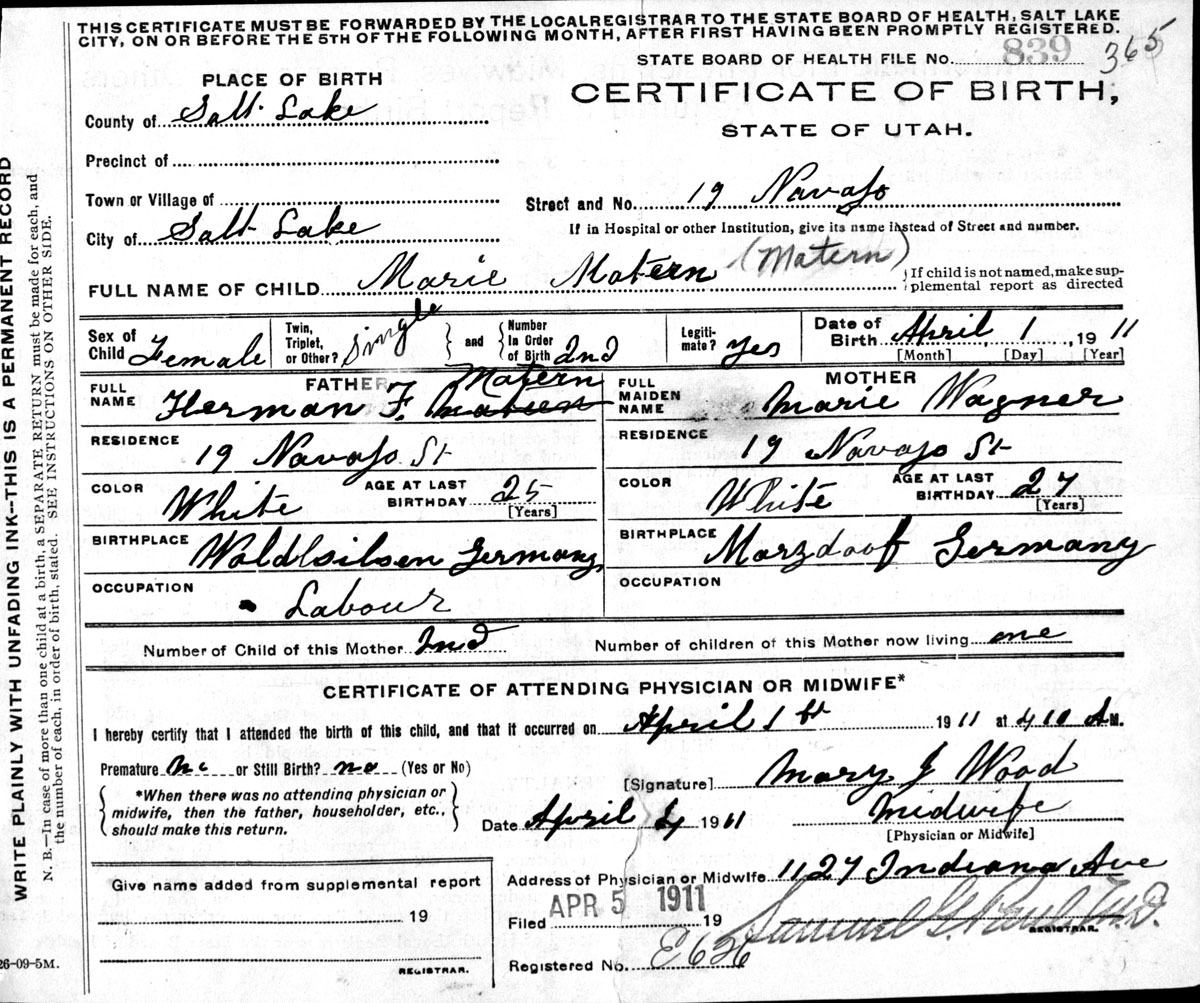 THIS CERTIFICATE MUST BE FORWARDED BY THE LOCALREGISTRAR TO THE STATE BOARD OF HEALTH, SALT LAKE
CITY, ON OR BEFORE THE 5TH OF THE FOLLOWING MONTH, AFTER FIRST HAVING BEEN PROMPTLY REGISTERED.
STATE BOARD OF HEALTH FILE No. 839 365
PLACE OF BIRTH
CERTIFICATE OF BIRTH,
STATE OF UTAH.
County of Salt Lake
Precinct of
Town or Village of
Street and No. 19 Navajo
City of Salt Lake
If in Hospital or other Institution, give its name instead of Street and number.
FULL NAME OF CHILD Marie Matern (Matern)
If child is not named, make sup-
plemental report as directed
Sex of Child Female
Twin, Triplet, or Other? Single
and Number In Order of Birth 2nd
Legiti-mate? Yes
Date of Birth April 1, 1911
[Month] [Day] [Year]
FATHER
FULL NAME Herman F. Matern
RESIDENCE 19 Navajo St
COLOR White AGE AT LAST BIRTHDAY 25 [Years]
BIRTHPLACE Germany
OCCUPATION Labour
MOTHER
FULL MAIDEN NAME Marie Wagner
RESIDENCE 19 Navajo St
COLOR White AGE AT LAST BIRTHDAY 27 [Years]
BIRTHPLACE Marzdoof Germany
OCCUPATION
Number of Child of this Mother 2nd Number of children of this Mother now living one
CERTIFICATE OF ATTENDING PHYSICIAN OR MIDWIFE*
I hereby certify that I attended the birth of this child, and that it occurred on April 1st 1911 at 4 10 A M.
Premature no or Still Birth? no (Yes or No)
[Signature] Mary J Wood
*When there was no attending physician or
midwife, then the father, householder, etc.,
should make this return.
Date April 4 1911
Midwife
[Physician or Midwife]
Give name added from supplemental report
19
REGISTRAR.
Address of Physician or Midwife 1127 Indiana Ave
Filed APR 5 1911 19
Samuel G. Paul M.D.
REGISTRAR.
Registered No. E636
26-09-5M.
WRITE PLAINLY WITH UNFADING INK--THIS IS A PERMANENT RECORD
N. B.—In case of more than one child at a birth, a SEPARATE RETURN must be made for each, and
the number of each, in order of birth, stated. SEE INSTRUCTIONS ON OTHER SIDE.